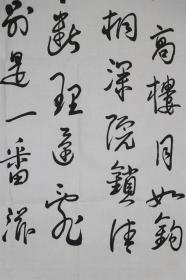 高樓月如鉤
桐深院鎖清
斷理還亂
別是一番滋